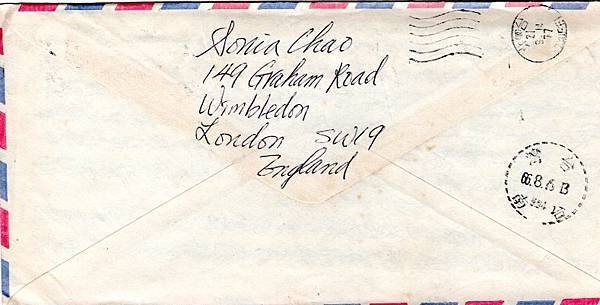 Sonia Chao
149 Graham Road
Wimbledon
London SW19
England
66.8.15 B